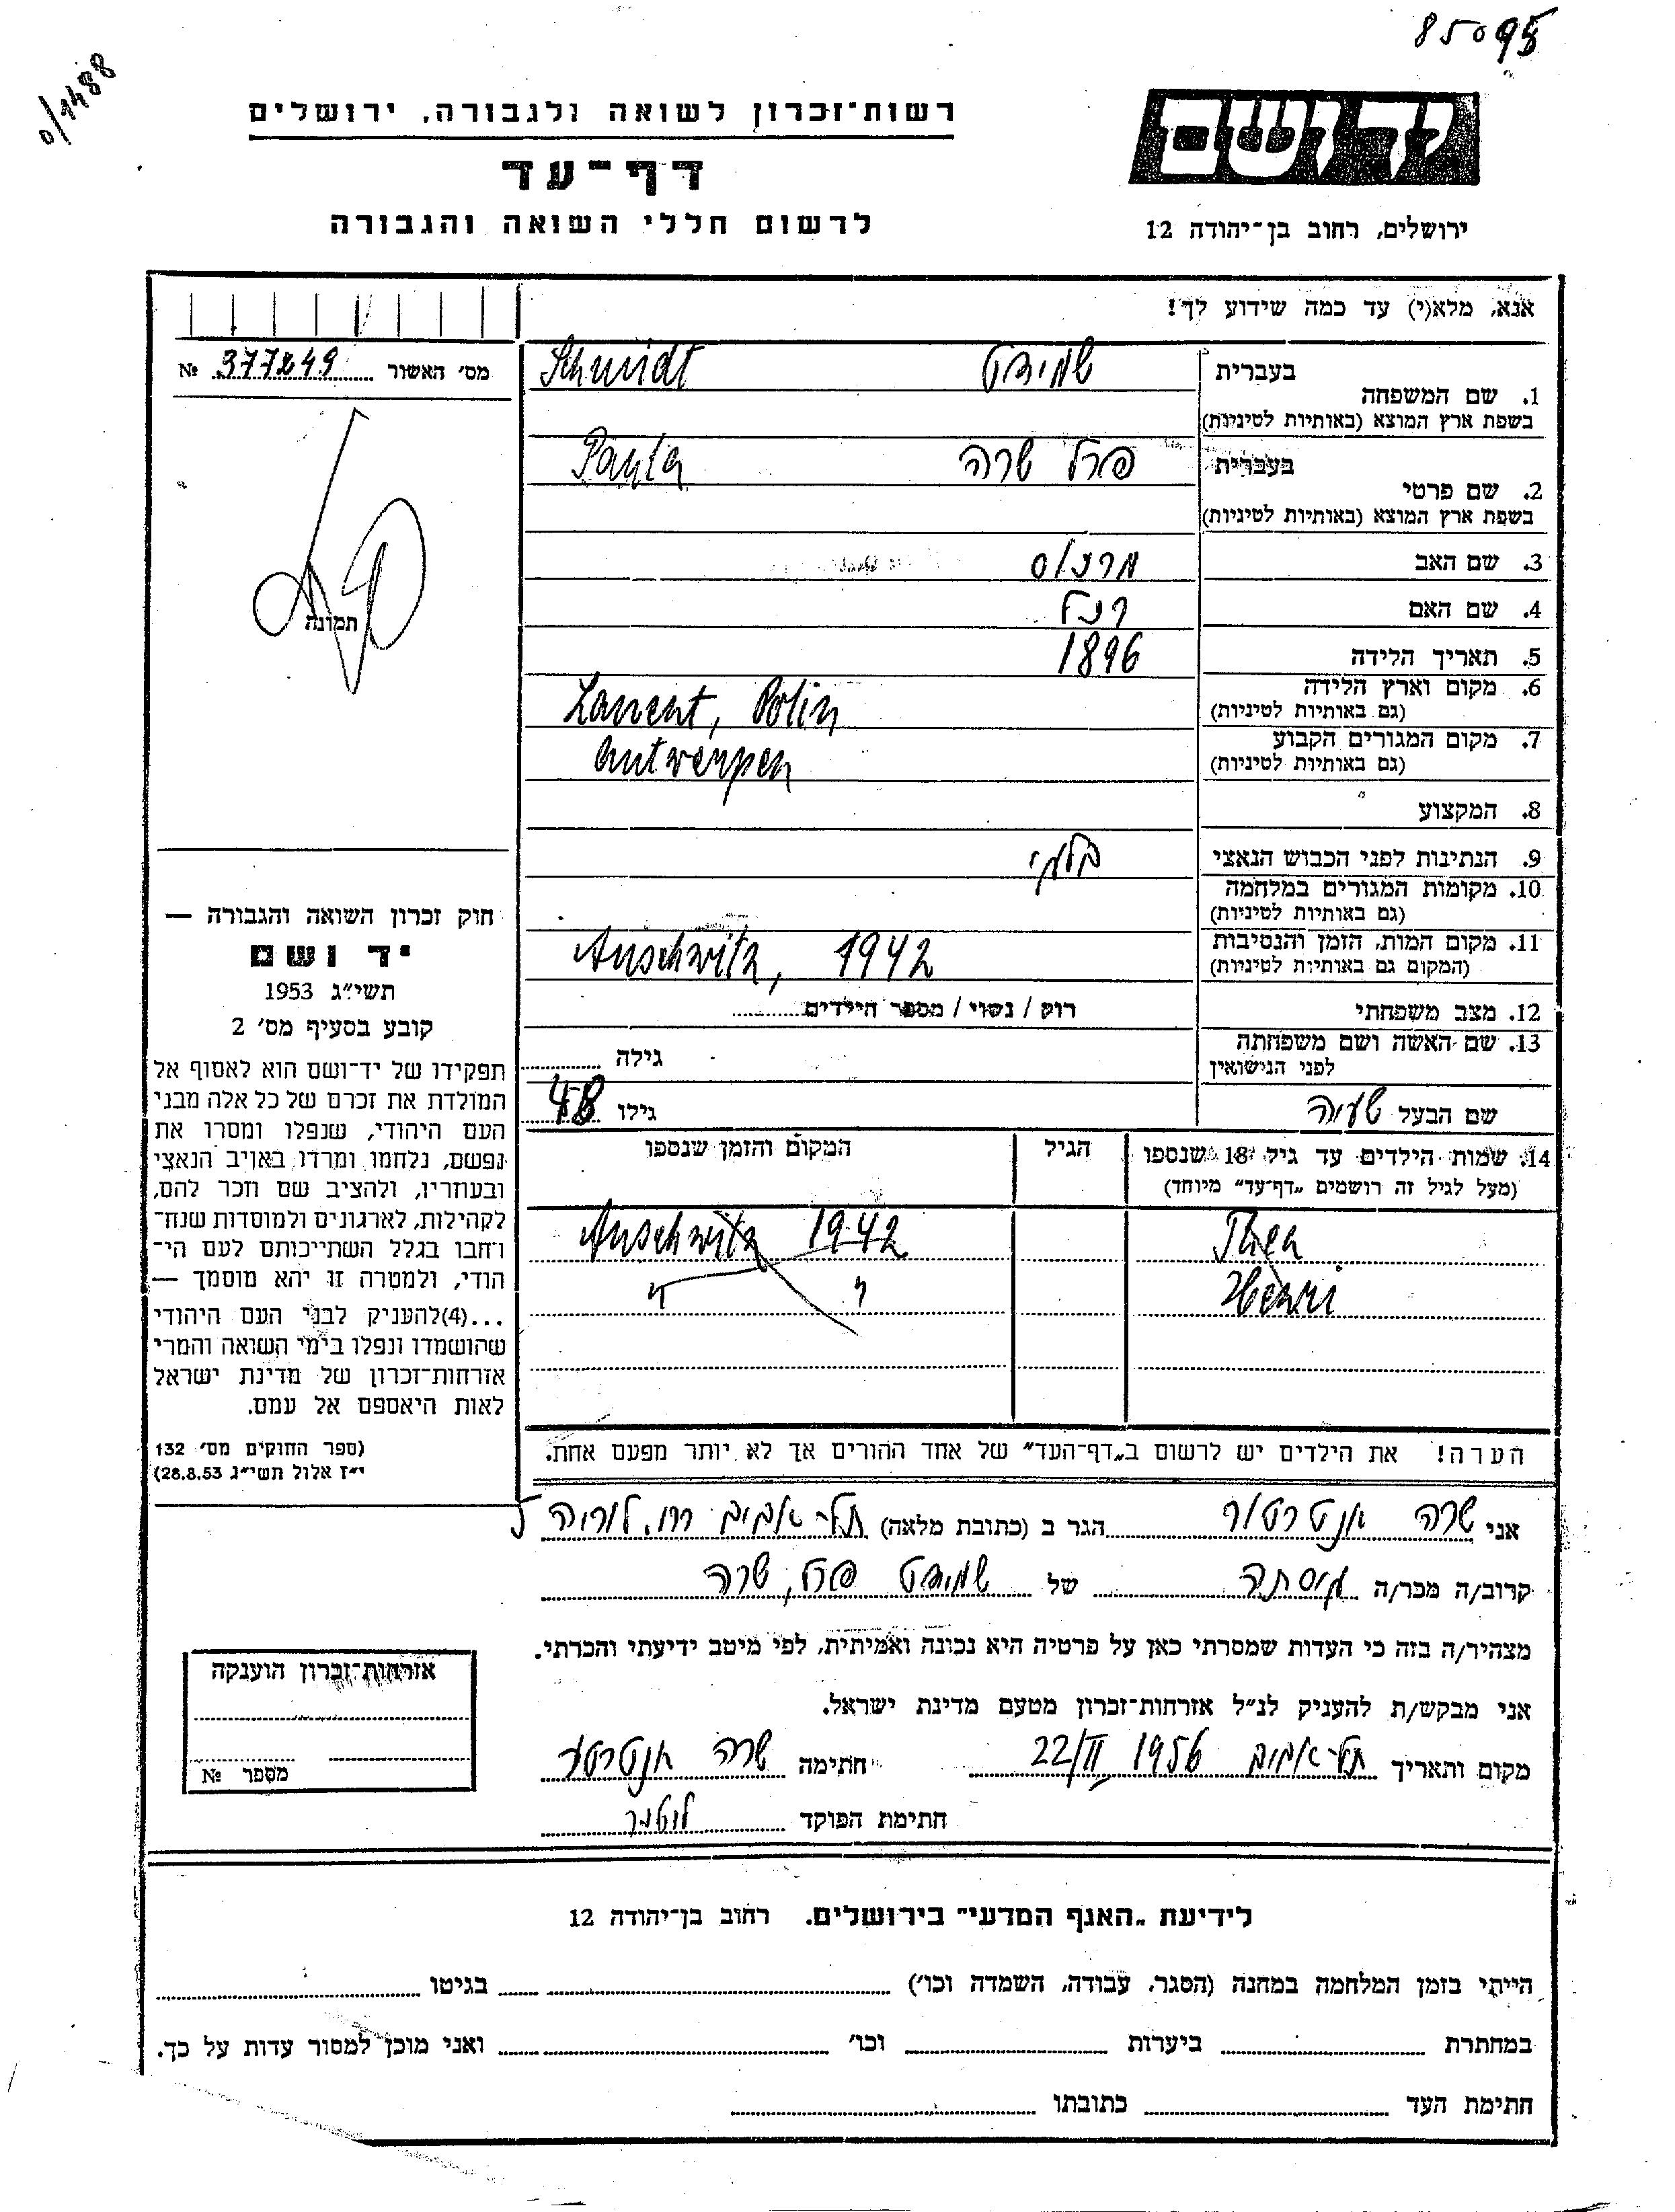 85095
0/1488
יד ושם
ירושלים, רחוב בן־יהודה 12
רשות־זכרון לשואה ולגבורה, ירושלים
דף־עד
לרשום חללי השואה והגבורה
אנא, מלא(י) עד כמה שידוע לך!
בעברית שמידט Schmidt
1. שם המשפחה
בשפת ארץ המוצא (באותיות לטיניות)
בעברית פרל שרה Paula
2. שם פרטי
בשפת ארץ המוצא (באותיות לטיניות)
3. שם האב מרכוס
4. שם האם רצל
5. תאריך הלידה 1896
6. מקום וארץ הלידה
(גם באותיות לטיניות) Polin
7. מקום המגורים הקבוע Antwerpen
(גם באותיות לטיניות)
8. המקצוע
9. הנתינות לפני הכבוש הנאצי בלגי
10. מקומות המגורים במלחמה
(גם באותיות לטיניות)
11. מקום המות, הזמן והנסיבות Auschwitz, 1942
(המקום גם באותיות לטיניות)
12. מצב משפחתי רוק / נשוי / מספר הילדים
13. שם האשה ושם משפחתה גילה
לפני הנישואין
שם הבעל שעיה גילו 48
14. שמות הילדים עד גיל 18 שנספו הגיל המקום והזמן שנספו
(מעל לגיל זה רושמים "דף־עד" מיוחד)
Thea Auschwitz 1942
Henri " "
הערה! את הילדים יש לרשום ב"דף־העד" של אחד ההורים אך לא יותר מפעם אחת.
מס' האשור 377249 №
תמונה
חוק זכרון השואה והגבורה —
יד ושם
תשי"ג 1953
קובע בסעיף מס' 2
תפקידו של יד־ושם הוא לאסוף אל
המולדת את זכרם של כל אלה מבני
העם היהודי, שנפלו ומסרו את
נפשם, נלחמו ומרדו באויב הנאצי
ובעוזריו, ולהציב שם וזכר להם,
לקהילות, לארגונים ולמוסדות שנח־
רחבו בגלל השתייכותם לעם הי־
הודי, ולמטרה זו יהא מוסמך —
...(4)להעניק לבני העם היהודי
שהושמדו ונפלו בימי השואה והמרי
אזרחות־זכרון של מדינת ישראל
לאות היאספם אל עמם.
(ספר החוקים מס' 132
י"ז אלול תשי"ג 28.8.53)
אני שרה הגר ב (כתובת מלאה) תל־אביב רח. לוריה 5
קרוב/ה מכר/ה גיסתה של שמידט פרל, שרה
מצהיר/ה בזה כי העדות שמסרתי כאן על פרטיה היא נכונה ואמיתית, לפי מיטב ידיעתי והכרתי.
אני מבקש/ת להעניק לנ"ל אזרחות־זכרון מטעם מדינת ישראל.
מקום ותאריך תל־אביב 22/II 1956 חתימה שרה
חתימת הפוקד
אזרחות־זכרון הוענקה
מספר №
לידיעת "האגף המדעי" בירושלים. רחוב בן־יהודה 12
הייתי בזמן המלחמה במחנה (הסגר, עבודה, השמדה וכו') בגיטו
במחתרת ביערות וכו' ואני מוכן למסור עדות על כך.
חתימת העד כתובתו